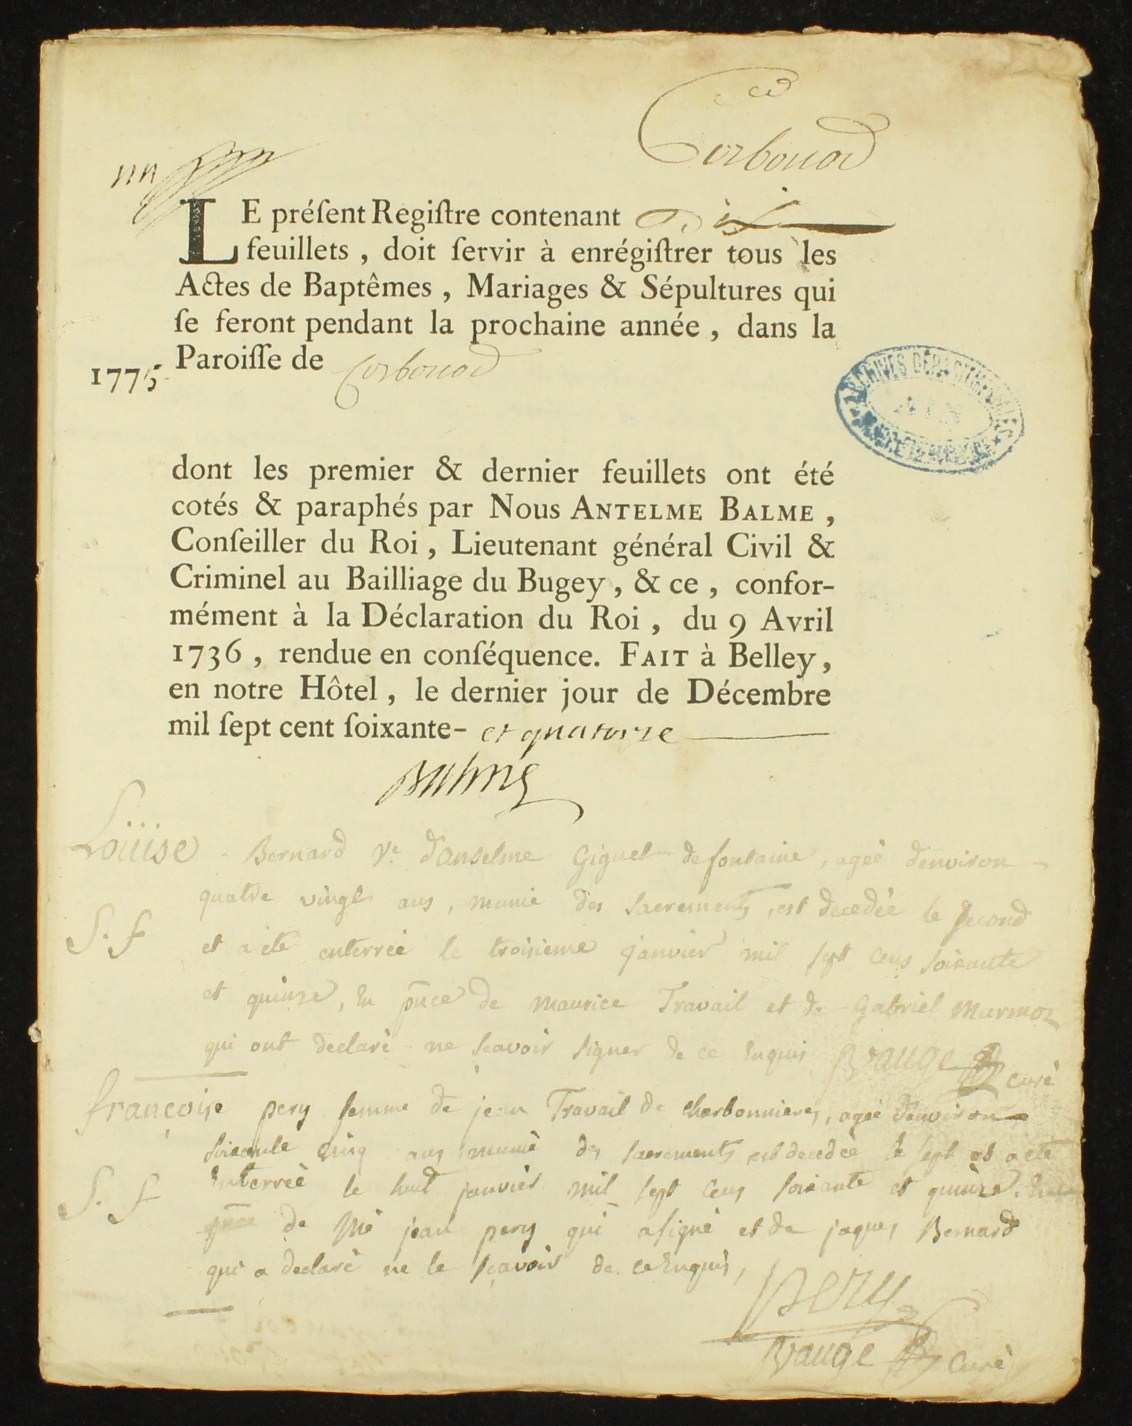 Corbonod
LE préſent Regiſtre contenant Dix
feuillets , doit ſervir à enrégiſtrer tous les
Actes de Baptêmes , Mariages & Sépultures qui
ſe feront pendant la prochaine année , dans la
Paroiſſe de Corbonod
1775
dont les premier & dernier feuillets ont été
cotés & paraphés par Nous ANTELME BALME ,
Conſeiller du Roi , Lieutenant général Civil &
Criminel au Bailliage du Bugey , & ce , confor-
mément à la Déclaration du Roi , du 9 Avril
1736 , rendue en conſéquence. FAIT à Belley ,
en notre Hôtel , le dernier jour de Décembre
mil ſept cent ſoixante- et quatorze
Balme
Loüise Bernard Ve d'anselme Giguet de fontaine, agée d'environ
quatre vingt ans, munie des sacrements, est decedée le second
S. f
et a été enterrée le troisieme janvier mil sept cens soixante
et quinze, En pnce de maurice Travail et de Gabriel marmoz
qui ont declaré ne scavoir signer de ce Enquis Bvauge curé
françoise pery femme de jean Travail de charbonnieres, agée d'environ
soixante cinq ans munie des sacrements est decedée le sept et a été
Enterrée le huit janvier mil sept cens soixante et quinze. En
S. f
pnce de Me jean pery qui a signé et de jaques Bernard
qui a declaré ne le scavoir de ce Enquis,
pery
Bvauge Curé